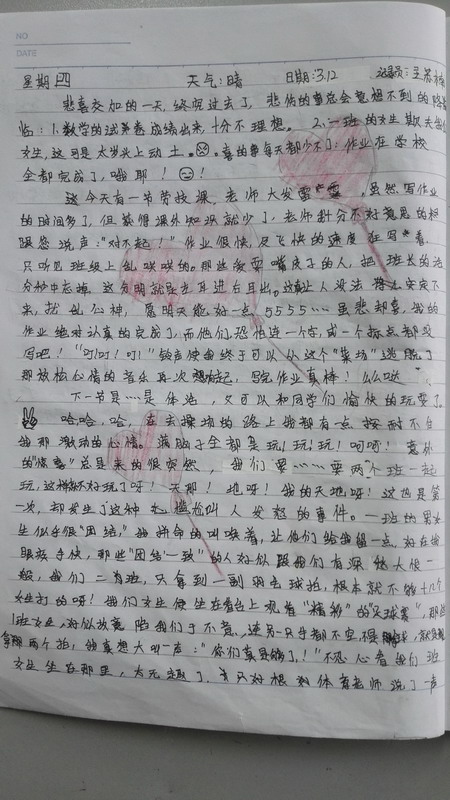 NO
DATE
星期四 天气:晴 日期:3.12 记录员:王
悲喜交加的一天,终究过去了,悲伤的事总会意想不到的降
临:1.数学的试卷成绩出来,十分不理想。2.一班的女生欺负
女生,这可是太岁头上动土。喜的事每天都少不了:作业在学校
全都完成了,哦耶!!
这今天有一节劳技课,老师大发雷霆,虽然写作业
的时间多了,但课外知识就少了,老师十分不好意思的
跟您说声:“对不起!”作业很快,又飞快的速度在写着,
只听见班级上乱哄哄的。那些爱耍嘴皮子的人,把班长的话
抛在脑后,这分明就是左耳进右耳出。这让人没法
来,扰乱心神,愿明天能好一点,5555…虽悲却喜,我的
作业绝对认真的完成了,而他们,恐怕连一个字,或一个标点都没
写吧!“叮!叮!叮!”铃声使我终于可以从这个“菜场”逃脱了
那放松心情的音乐再次想起,写完作业真棒!么么哒
下一节是…是体活,又可以和同学们愉快的玩耍了。
哈哈,哈,在去操场的路上我都有一点按耐不住
我那激动的心情。满脑子全都是玩!玩!玩!呵呵!意外
的“惊喜”总是来的很突然,我们要……要两个班一起
玩,这样就不好玩了呀!天那!地呀!我的天地呀!这也是第
一次,却发生了这种尴尬叫人发怒的事件。一班的男女
生似乎很“团结,”我拼命的叫唤着,让他们给我留一点,好在我
眼疾手快,那些“团结一致”的人好似跟我们有深仇大恨一
般,我们二班,只拿到一副羽毛球拍,根本就不够十几个
女生打的呀!我们女生便坐在看台上观看“精彩”的“足球赛”,那些
1班女生,好似故意趁我们于不意,连另一只手都不空
拿那两个拍,我真想大吼一声:“你们真是够了!”不忍心看我们班
女生坐在那里,太无趣了,我只好根和体育老师说了一声